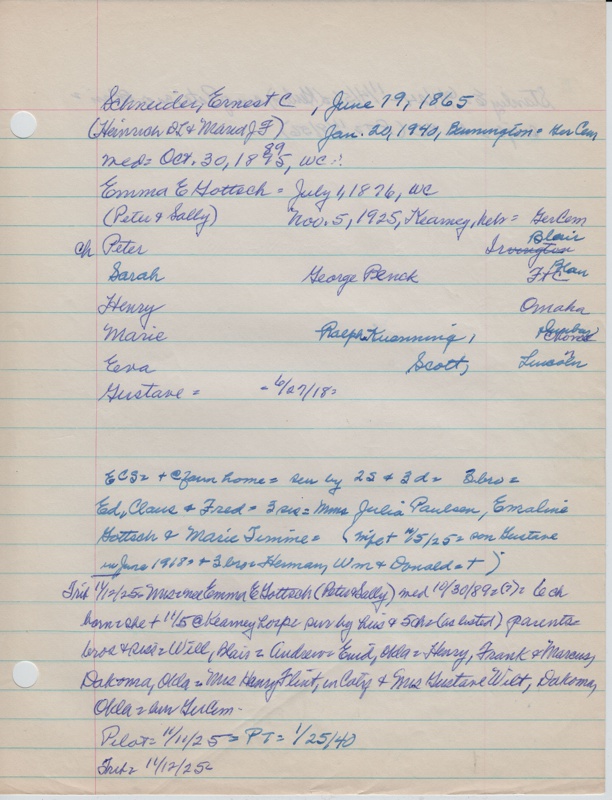 Schneider, Ernest C , June 19, 1865
(Heinrich & Maria J F) Jan. 20, 1940, Bennington = GerCem
med = Oct. 30, 1895, 89 WC
Emma E Gottsch = July 1, 1876, WC
(Peter & Sally) Nov. 5, 1925, Kearney, Nebr = GerCem
ch Peter Irvington Blair
Sarah George Penck Ft C
Henry Omaha
Marie Ralph Kuanning,
Eeva Scott, Lincoln
Gustave = = 6/27/18 =
ECS = + C farm home = sur by 2S & 3d = 3bro =
Ed, Claus & Fred = 3 sis = Mmes Julia Paulsen, Emaline
Gottsch & Marie Timme = (wife + 11/5/25 = son Gustave
in June 1918 = + 3bro = Herman, Wm & Donald = +)
Trib 11/12/25 = Mrs = nee Emma E Gottsch (Peter & Sally) med 10/30/89 = (?) = 6 ch
born = she + 11/5 C Kearney Hospz sur by hus & 5ch = (as listed) parents =
bros & sis = Will, Blair = Andrew = Enid, Okla = Henry, Frank & Marcus,
Dakoma, Okla = Mrs Henry Flint, in Coty & Mrs Gustave Wilt, Dakoma,
Okla = bur GerCem -
Pilot = 11/11/25 = PT = 1/25/40
Trib = 11/12/25 =